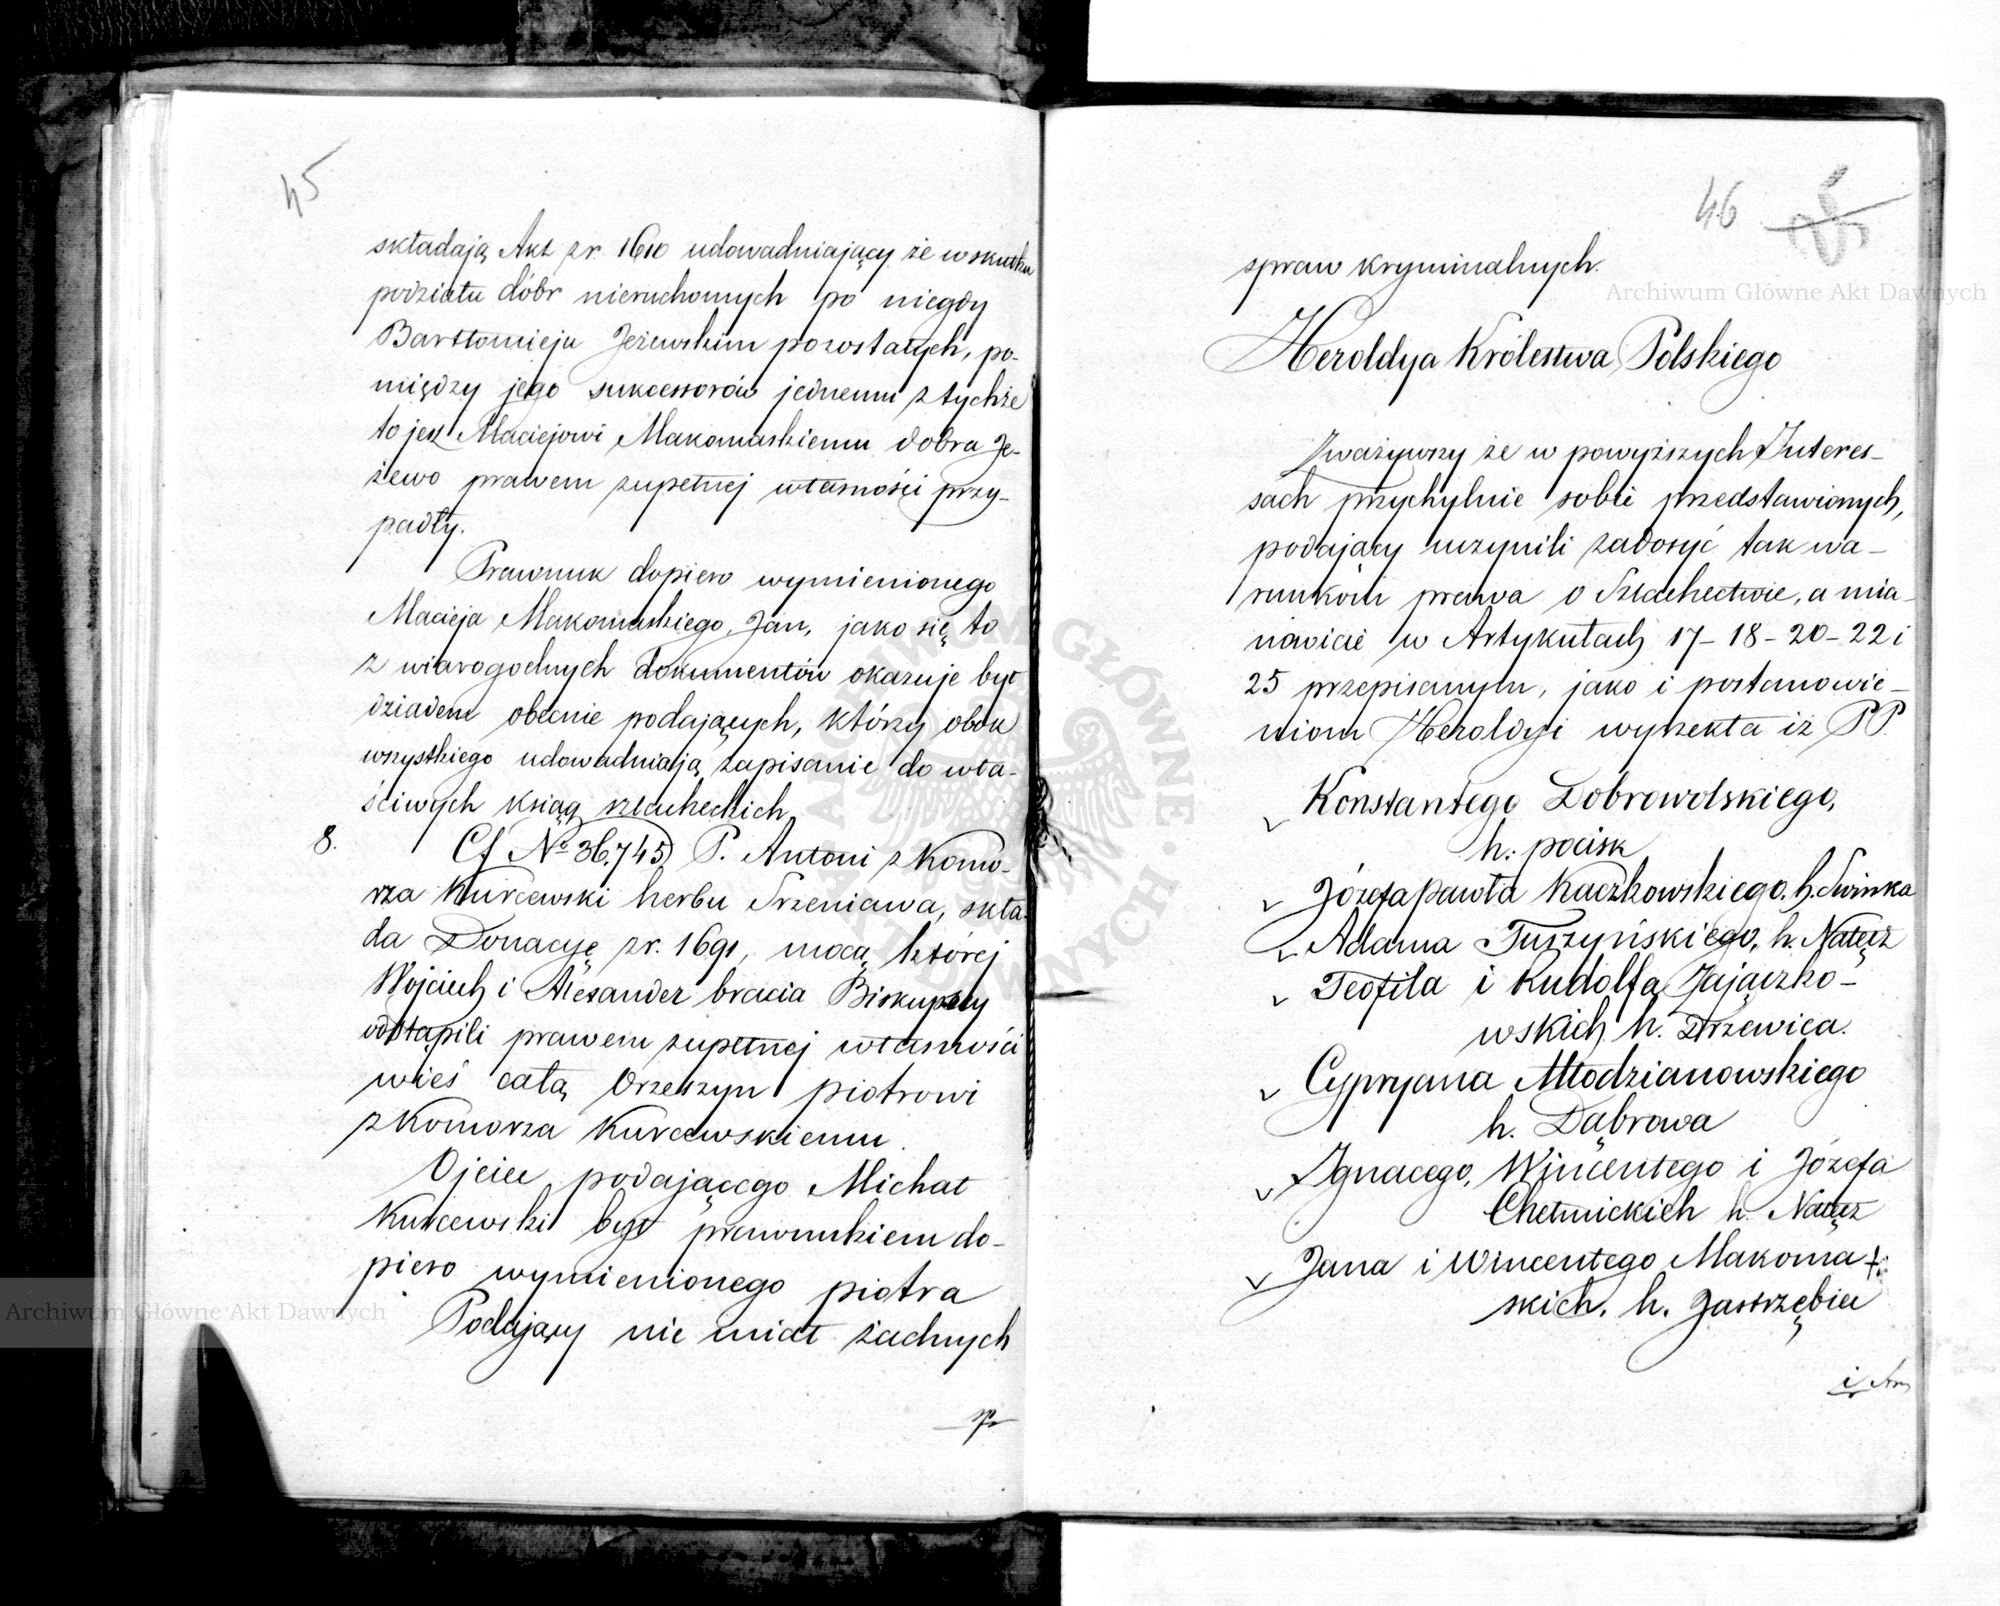 45
składają Akt z r. 1610 udowadniający że wskutku
podziału dóbr nieruchomych po niegdy
Bartłomieju Jeżewskim pozostałych, po-
między jego sukcessorów jednemu z tychże
to jest Maciejowi Makomaskiemu dobra Je-
żewo prawem zupełnej własności przy-
padły.
Prawnuk dopiero wymienionego
Macieja Makomaskiego, Jan, jako się to
z wiarogodnych dokumentów okazuje był
dziadem obecnie podających, którzy obok
wszystkiego udowadniają zapisanie do wła-
ściwych ksiąg szlacheckich
8. Cf No 36,745) P. Antoni z Komo-
rza Kurcewski herbu Srzeniawa, skła-
da Donacyę z r. 1691, mocą której
Wojciech i Alexander bracia Biskupscy
odstąpili prawem zupełnej własności
wieś całą Orzeszyn piotrowi
z Komorza Kurcewskiemu.
Ojciec podającego Michał
Kurcewski był prawnukiem do-
piero wymienionego piotra
Podający nie miał żadnych
sp
46
spraw kryminalnych.
Heroldya Królestwa Polskiego
Zważywszy że w powyższych Interes-
sach przychylnie sobie przedstawionych,
podający uczynili zadosyć tak wa-
runkom prawa o Szlachectwie, a mia-
nowicie w Artykułach 17-18-20-22 i
25 przepisanym, jako i postanowie-
niom Heroldyi wyrzekła iż PP.
Konstantego Dobrowolskiego,
h: pocisk
Józefa pawła Kaczkowskiego. h. Swinka
Adama Tuszyńskiego, h. Nałęcz
Teofila i Rudolfa Zajączko-
wskich h. Drzewica.
Cypryana Młodzianowskiego
h. Dąbrowa
Ignacego, Wincentego i Józefa
Chełmickich h. Nałęcz
Jana i Wincentego Makoma-
skich. h. Jastrzębiec
i An
Archiwum Główne Akt Dawnych
Archiwum Główne Akt Dawnych